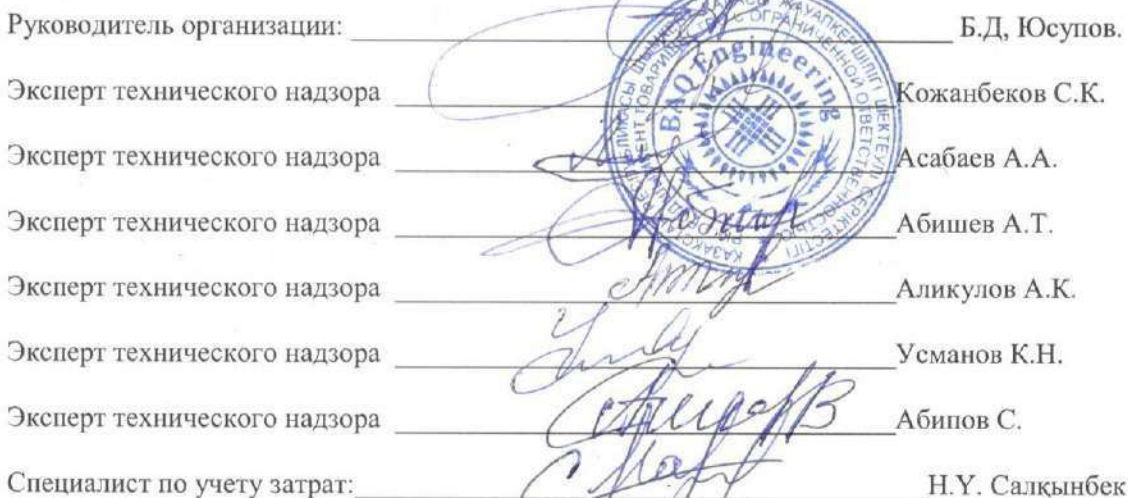 Руководитель организации: Б.Д, Юсупов.
Эксперт технического надзора Кожанбеков С.К.
Эксперт технического надзора Асабаев А.А.
Эксперт технического надзора Абишев А.Т.
Эксперт технического надзора Аликулов А.К.
Эксперт технического надзора Усманов К.Н.
Эксперт технического надзора Абипов С.
Специалист по учету затрат: Н.Ү. Салқынбек
BAQ Engineering